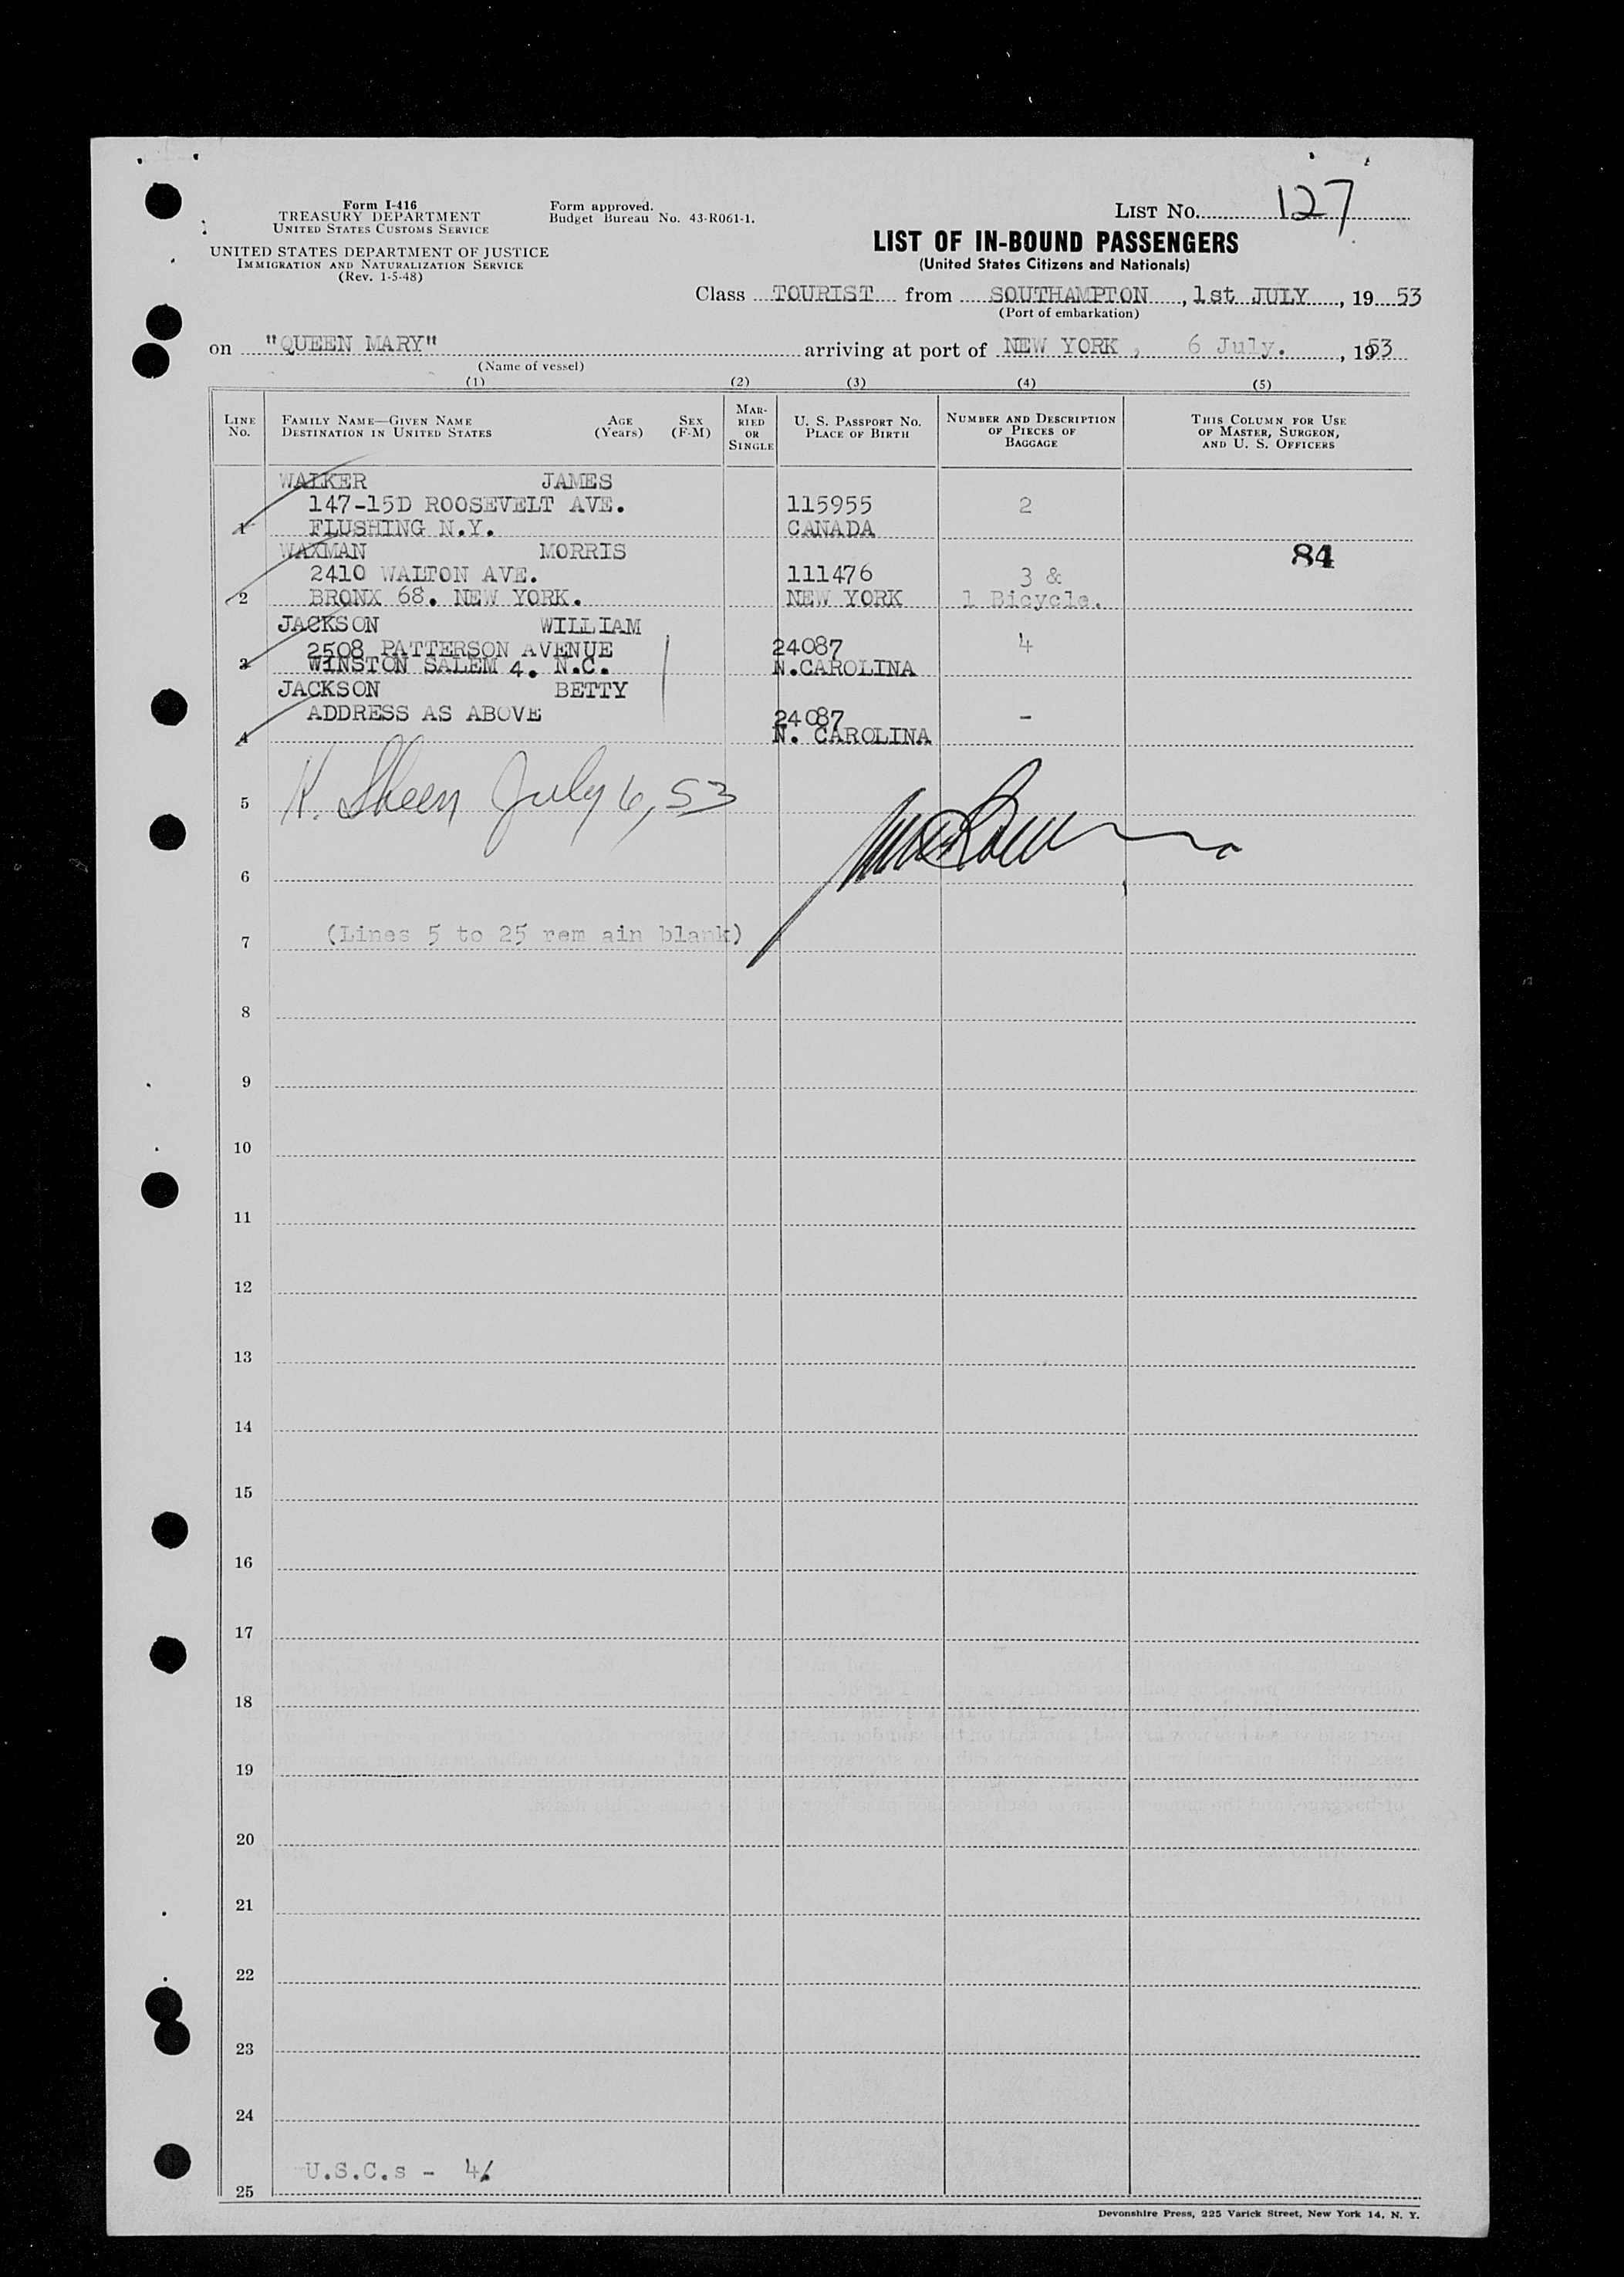 Form I-416
TREASURY DEPARTMENT
UNITED STATES CUSTOMS SERVICE
UNITED STATES DEPARTMENT OF JUSTICE
IMMIGRATION AND NATURALIZATION SERVICE
(Rev. 1-5-48)
Form approved.
Budget Bureau No. 43-R061-1.
LIST NO. 127
LIST OF IN-BOUND PASSENGERS
(United States Citizens and Nationals)
Class TOURIST from SOUTHAMPTON, 1st JULY, 19 53
(Port of embarkation)
on "QUEEN MARY" arriving at port of NEW YORK, 6 July., 1953
(Name of vessel)
(1) (2) (3) (4) (5)
LINE NO.
FAMILY NAME—GIVEN NAME
DESTINATION IN UNITED STATES
AGE (Years)
SEX (F-M)
MARRIED OR SINGLE
U. S. PASSPORT NO.
PLACE OF BIRTH
NUMBER AND DESCRIPTION OF PIECES OF BAGGAGE
THIS COLUMN FOR USE OF MASTER, SURGEON, AND U. S. OFFICERS
WALKER JAMES
147-15D ROOSEVELT AVE. 115955 2
1 FLUSHING N.Y. CANADA
WAXMAN MORRIS 84
2410 WALTON AVE. 111476 3 &
2 BRONX 68. NEW YORK. NEW YORK 1 Bicycle.
JACKSON WILLIAM
2508 PATTERSON AVENUE 24087 4
3 WINSTON SALEM 4. N.C. N.CAROLINA
JACKSON BETTY
ADDRESS AS ABOVE 24087 -
4 N. CAROLINA
5 K. Sheen July 6, 53
6
7 (Lines 5 to 25 rem ain blank)
8
9
10
11
12
13
14
15
16
17
18
19
20
21
22
23
24
25 U.S.C.s - 4.
Devonshire Press, 225 Varick Street, New York 14, N. Y.